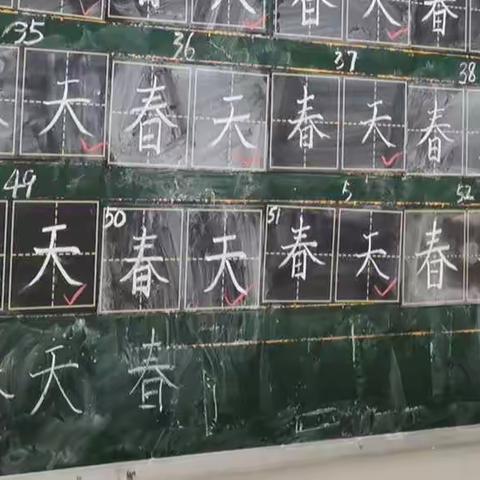 春 天 春 天 春
35 36 37 38
天 春 天 春 天 春
49 5 52
天 50 春 天 51 春 天 春
天 春